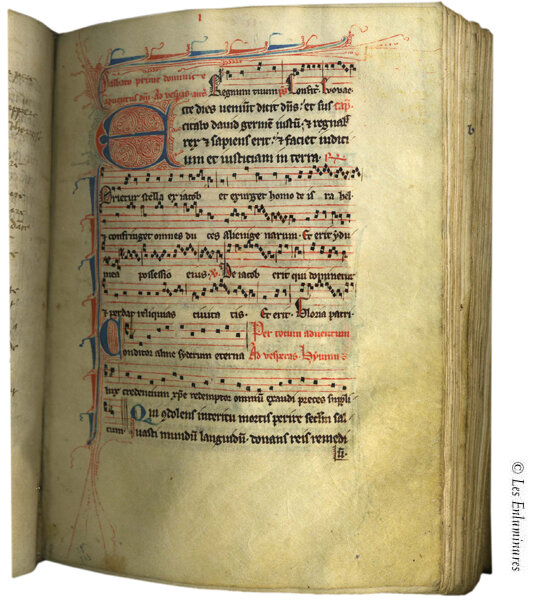 Sabbato prime dominice
Regnum tuum Confit. Novac
Ad vesperas
Ecce dies veniunt dicit dns. et sus cap
citabo dauid germen iustu. et regnab
rex et sapiens erit. et faciet iudici
um et iusticiam in terra.
Orietur stella ex iacob et exurget homo de is ra hel
confringet omnes du ces alienige narum. Et erit
mea possessio eius. De iacob erit qui dominetur
et perdat reliquias ciuita tis. Et erit. Gloria patri
Per totum aduentum
Conditor alme syderum eterna Ad vesperas Hymnus
lux credencium xpe redemptor omniu exaudi preces suppli
cum. Qui condolens interitu mortis perire seclm sal
uasti mundu languidu. donans reis remedi
© Les Enluminures